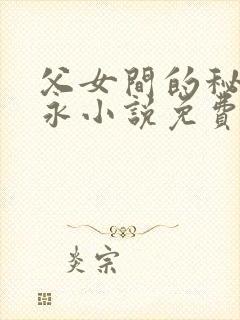 父女間的秘
永小說免費
炎宗